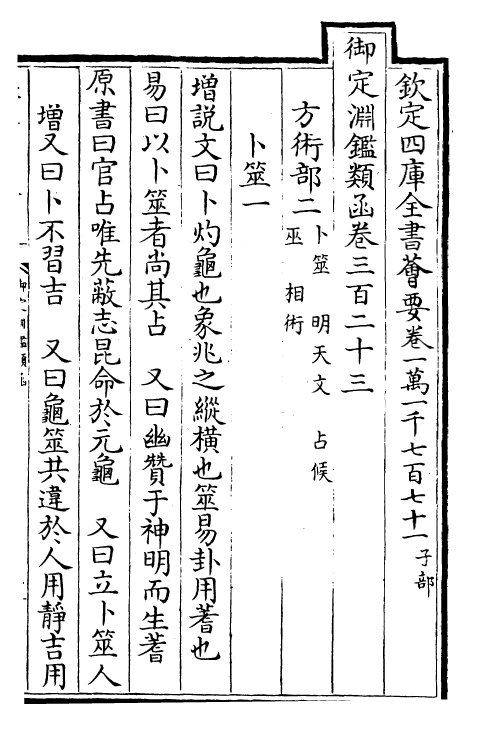 欽定四庫全書薈要卷一萬一千七百七十一子部
御定淵鑑類函卷三百二十三
方術部二卜筮 明天文 占候
巫 相術
卜筮一
增説文曰卜灼龜也象兆之縱横也筮易卦用蓍也
易曰以卜筮者尚其占 又曰幽贊于神明而生蓍
原書曰官占唯先蔽志昆命於元龜 又曰立卜筮人
增又曰卜不習吉 又曰龜筮共違於人用靜吉用